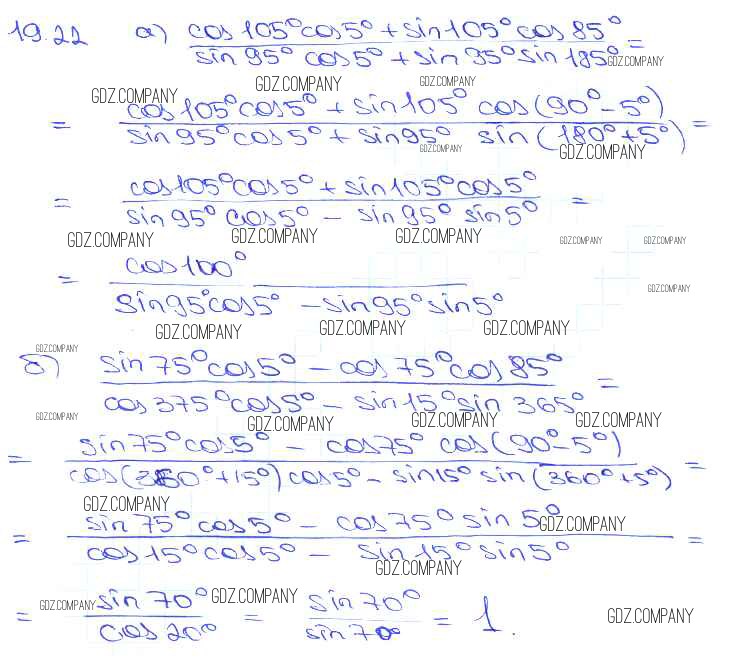 19.22 а) cos 105° cos 5° + sin 105° cos 85°
sin 95° cos 5° + sin 95° sin 185° =
GDZ.COMPANY
GDZ.COMPANY GDZ.COMPANY GDZ.COMPANY
cos 105° cos 5° + sin 105° cos (90° - 5°)
= sin 95° cos 5° + sin 95° sin (180° + 5°) =
GDZ.COMPANY GDZ.COMPANY
cos 105° cos 5° + sin 105° cos 5°
= sin 95° cos 5° - sin 95° sin 5° =
GDZ.COMPANY GDZ.COMPANY GDZ.COMPANY GDZ.COMPANY GDZ.COMPANY
cos 100°
= sin 95° cos 5° - sin 95° sin 5°
GDZ.COMPANY
GDZ.COMPANY GDZ.COMPANY GDZ.COMPANY
GDZ.COMPANY
б) sin 75° cos 5° - cos 75° cos 85°
cos 375° cos 5° - sin 15° sin 365° =
GDZ.COMPANY GDZ.COMPANY GDZ.COMPANY GDZ.COMPANY
sin 75° cos 5° - cos 75° cos (90° - 5°)
= cos (360° + 15°) cos 5° - sin 15° sin (360° + 5°) =
GDZ.COMPANY
sin 75° cos 5° - cos 75° sin 5°
GDZ.COMPANY
= cos 15° cos 5° - sin 15° sin 5° =
GDZ.COMPANY
= GDZ.COMPANY sin 70° GDZ.COMPANY = sin 70° = 1.
cos 20° sin 70°
GDZ.COMPANY